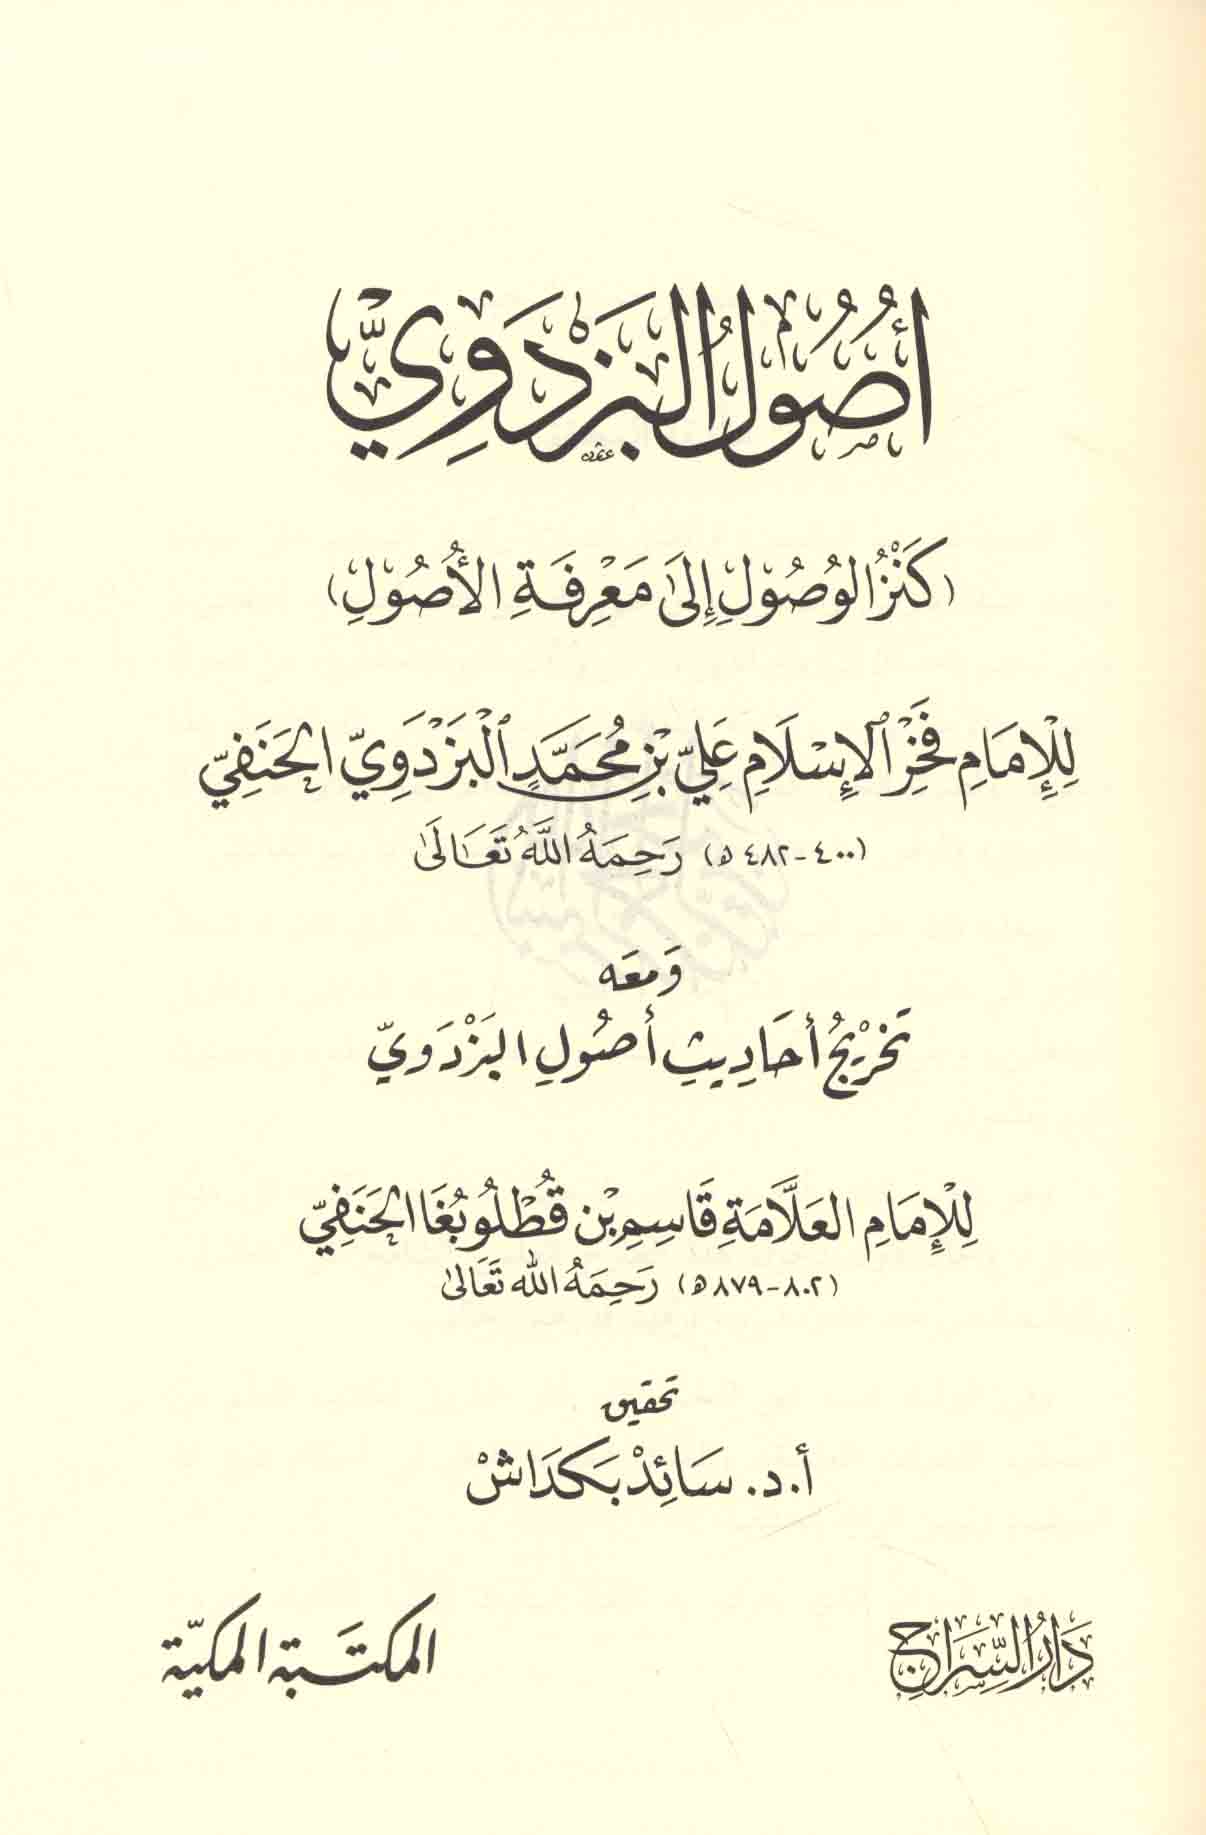 أُصُولُ البَزْدَوِيّ
(كَنْزُ الوُصُوْلِ إِلَىٰ مَعْرِفَةِ الأُصُوْلِ)
لِلْإِمَامِ فَخْرِ الإِسْلَامِ عَلِيِّ بْنِ مُحَمَّدٍ الْبَزْدَوِيّ الحَنَفِيّ
(٤٠٠-٤٨٢هـ) رَحِمَهُ اللَّهُ تَعَالَىٰ
وَمعَه
تَخْرِيْجُ أحَادِيثِ أصُولِ البَزْدَوِيّ
لِلْإِمَامِ العَلَّامَةِ قَاسِمِ بْن قُطْلُوبُغَا الحَنَفِيّ
(٨٠٢-٨٧٩هـ) رَحِمَهُ اللَّه تَعَالىٰ
تحقيق
أ.د. سَائِدْ بَكدَاشْ
دَارُ السِّرَاج
المكتَبة المكيّة